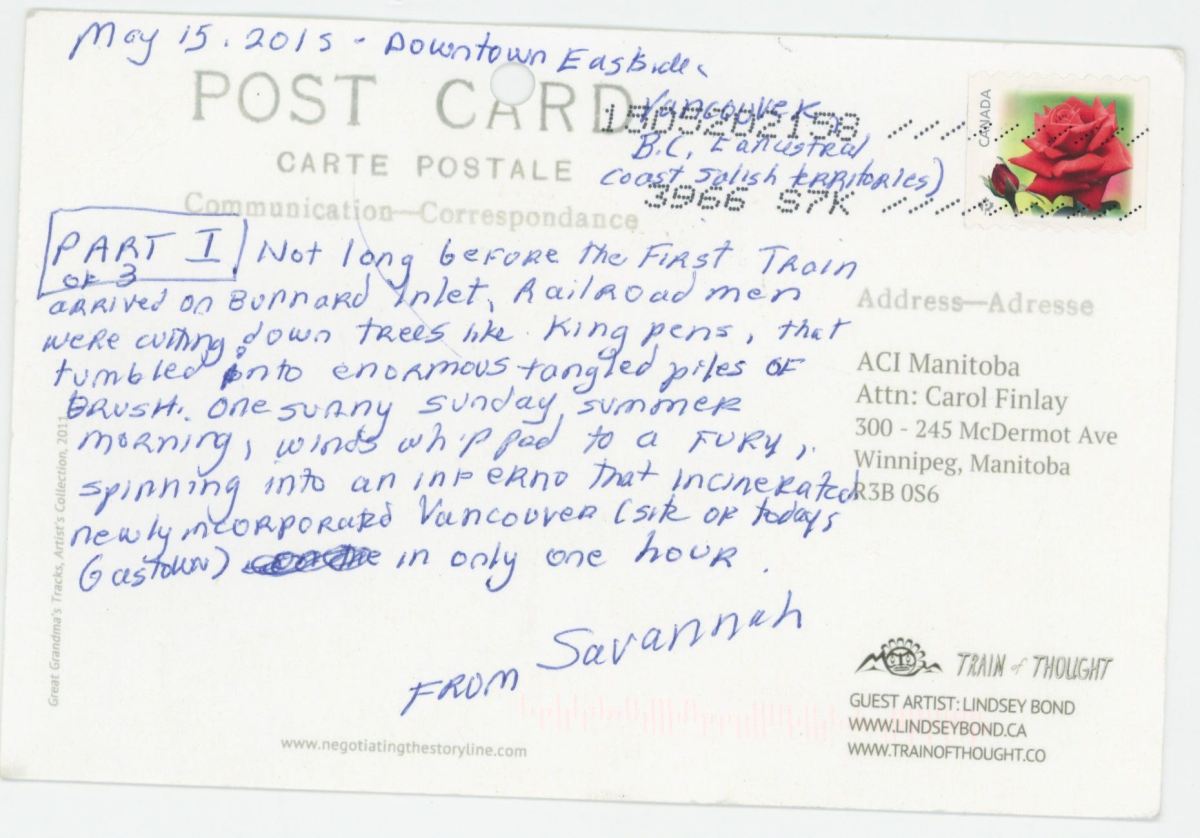 May 15. 2015 - Downtown Eastside
POST CARD
Vancouver,
1509282158
CARTE POSTALE
B.C.,
Coast Salish territories)
Communication—Correspondance
3966 S7K
CANADA
PART I
OF 3
Not long before the First Train
arrived on Burrard Inlet, Railroad men
were cutting down trees like King pens, that
tumbled onto enormous tangled piles OF
BRUSH. One sunny Sunday, summer
morning, winds whipped to a FURY,
spinning into an inferno that incinerated
newly incorporated Vancouver (site of todays
Gastown) in only one hour.
FROM Savannah
Address—Adresse
ACI Manitoba
Attn: Carol Finlay
300 - 245 McDermot Ave
Winnipeg, Manitoba
R3B 0S6
Great Grandma's Tracks, Artist's Collection, 2011
TRAIN of THOUGHT
GUEST ARTIST: LINDSEY BOND
WWW.LINDSEYBOND.CA
WWW.TRAINOFTHOUGHT.CO
www.negotiatingthestoryline.com